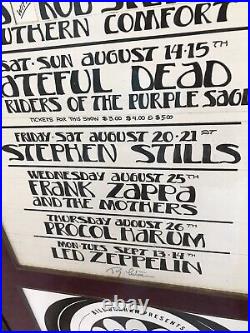 ROD STE
SOUTHERN COMFORT
SAT·SUN AUGUST 14·15TH
ATEFUL DEAD
RIDERS OF THE PURPLE SAG
TICKETS FOR THIS SHOW $3.00 $4.00 & $5.00
FRIDAY·SAT AUGUST 20·21 ST
STEPHEN STILLS
WEDNESDAY AUGUST 25TH
FRANK ZAPPA
AND THE MOTHERS
THURSDAY AUGUST 26TH
PROCOL HARUM
MON·TUES SEPT. 13·14TH
LED ZEPPELIN
PRESENTS